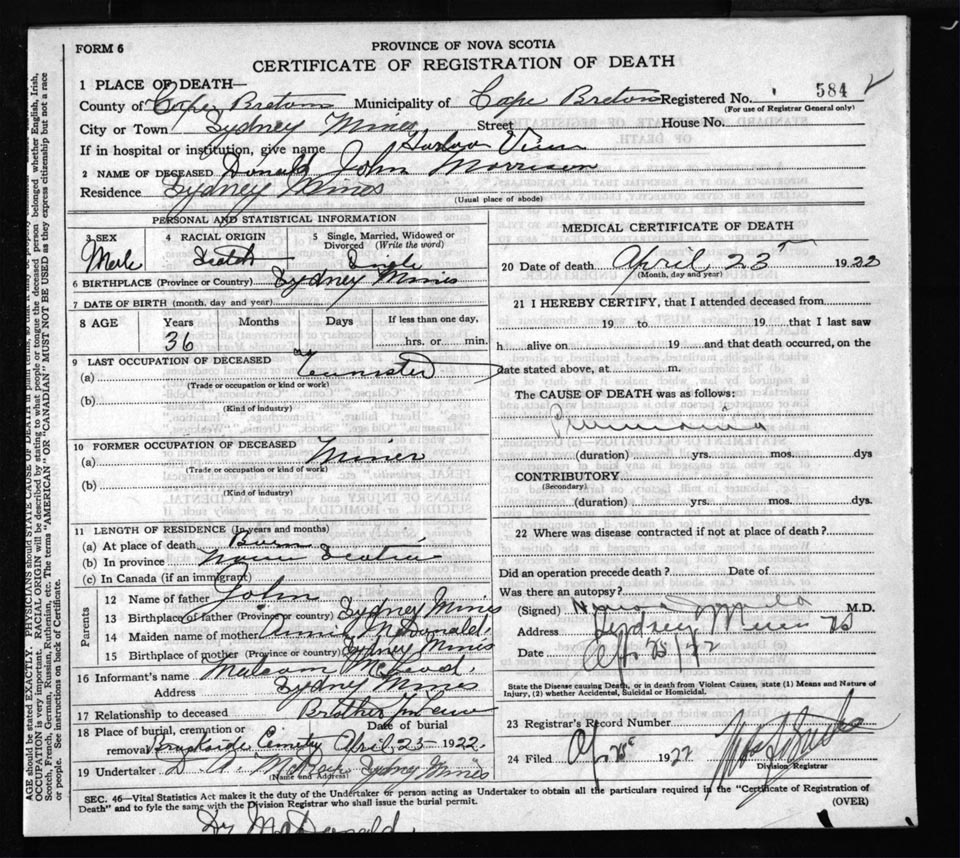 FORM 6
PROVINCE OF NOVA SCOTIA
CERTIFICATE OF REGISTRATION OF DEATH
1 PLACE OF DEATH—
County of Cape Breton Municipality of Cape Breton Registered No. 584
(For use of Registrar General only)
City or Town Sydney Mines Street House No.
If in hospital or institution, give name Harbor View
2 NAME OF DECEASED Donald John Morrison
Residence Sydney Mines
(Usual place of abode)
PERSONAL AND STATISTICAL INFORMATION
3 SEX 4 RACIAL ORIGIN 5 Single, Married, Widowed or Divorced (Write the word)
Male Scotch Single
6 BIRTHPLACE (Province or Country) Sydney Mines
7 DATE OF BIRTH (month, day and year)
8 AGE Years Months Days If less than one day,
36 hrs. or min.
9 LAST OCCUPATION OF DECEASED
(a) Teamster
(Trade or occupation or kind or work)
(b)
(Kind of industry)
10 FORMER OCCUPATION OF DECEASED
(a) Miner
(Trade or occupation or kind of work)
(b)
(Kind of industry)
11 LENGTH OF RESIDENCE (In years and months)
(a) At place of death Born
(b) In province Nova Scotia
(c) In Canada (if an immigrant)
Parents
12 Name of father John
13 Birthplace of father (Province or country) Sydney Mines
14 Maiden name of mother Annie McDonald
15 Birthplace of mother (Province or country) Sydney Mines
16 Informant's name Malcom McLeod
Address Sydney Mines
17 Relationship to deceased Brother in Law
18 Place of burial, cremation or removal Date of burial
Brookside Cimetry April 25 1922
19 Undertaker D. A. Sydney Mines
(Name and Address)
MEDICAL CERTIFICATE OF DEATH
20 Date of death April 23 1922
(Month, day and year)
21 I HEREBY CERTIFY, that I attended deceased from
19 to 19 that I last saw
h alive on 19 and that death occurred, on the
date stated above, at m.
The CAUSE OF DEATH was as follows:
Pneumonia
(duration) yrs. mos. dys.
CONTRIBUTORY
(Secondary)
(duration) yrs. mos. dys.
22 Where was disease contracted if not at place of death?
Did an operation precede death? Date of
Was there an autopsy?
(Signed) M.D.
Address Sydney Mines NS
Date Apr 25/22
State the Disease causing Death, or in death from Violent Causes, state (1) Means and Nature of
Injury, (2) whether Accidental, Suicidal or Homicidal.
23 Registrar's Record Number
24 Filed Ap 25 1922
Division Registrar
SEC. 46—Vital Statistics Act makes it the duty of the Undertaker or person acting as Undertaker to obtain all the particulars required in the "Certificate of Registration of
Death" and to fyle the same with the Division Registrar who shall issue the burial permit. (OVER)
Dr McDonald
AGE should be stated EXACTLY. PHYSICIANS should STATE CAUSE OF DEATH in plain terms,
OCCUPATION is very important. RACIAL ORIGIN will be described by stating to what people or tongue the deceased person belonged whether English, Irish,
Scotch, French, German, Russian, Ruthenian, etc. The terms "AMERICAN" OR "CANADIAN" MUST NOT BE USED as they express citizenship but not a race
or people. See instructions on back of Certificate.